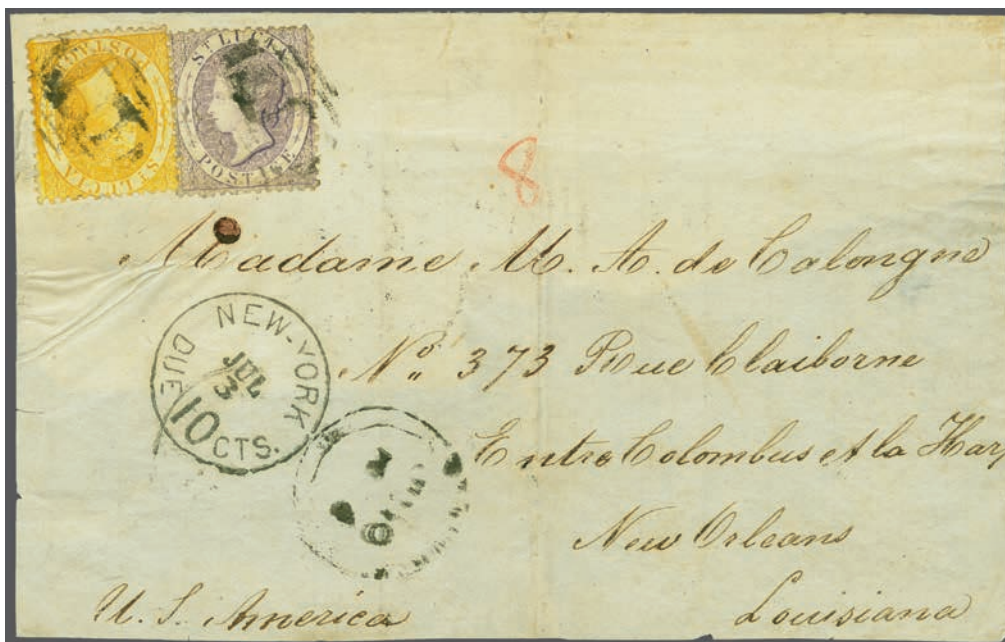 ST LUCIA
POSTAGE
ST LUCIA
POSTAGE
8
Madame M. A. de Calongne
NEW-YORK
JUL
3
DUE 10 CTS.
No 373 Rue Claiborne
Entre Colombus et la Harp
New Orleans
U. S. America
Louisiana